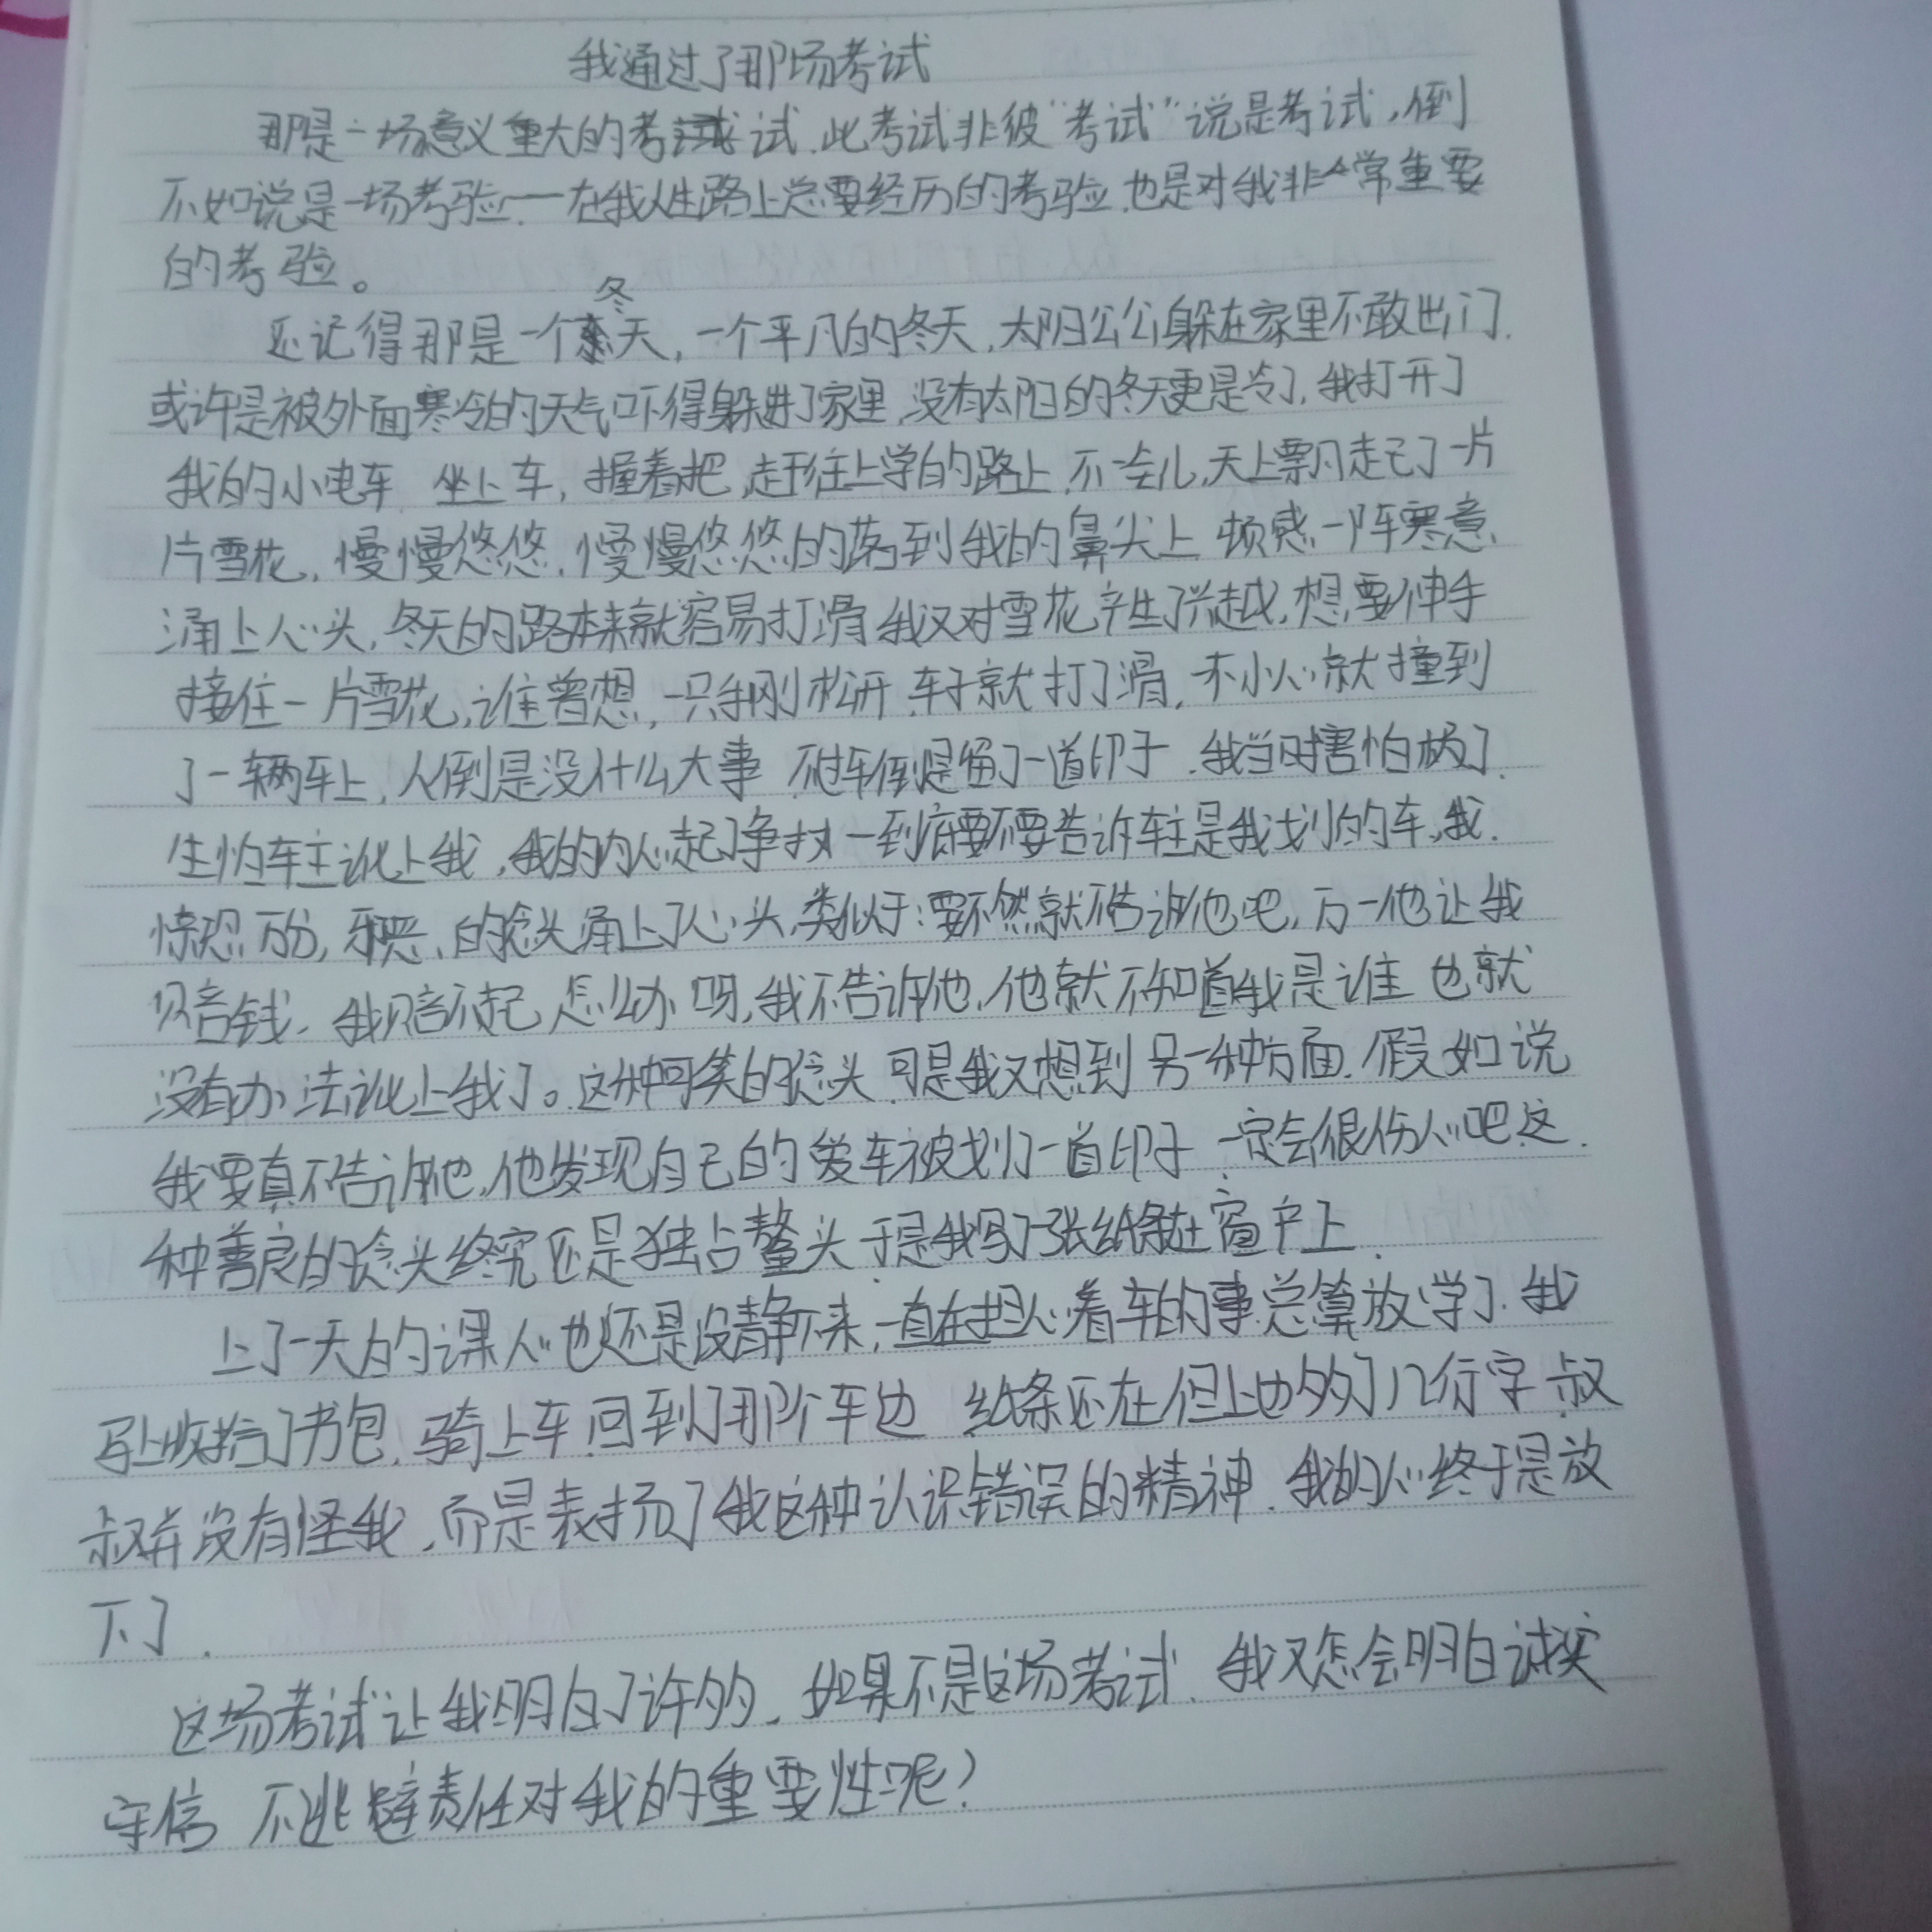 我通过了那场考试
那是一场意义重大的考试.此考试非彼“考试”说是考试,倒
不如说是一场考验——在我人生路上总要经历的考验.也是对我非常重要
的考验。
还记得那是一个冬天,一个平凡的冬天,太阳公公躲在家里不敢出门.
或许是被外面寒冷的天气吓得躲进了家里,没有太阳的冬天更是冷了,我打开了
我的小电车,坐上车,握着把,赶往上学的路上,不一会儿,天上飘起了一片
片雪花,慢慢悠悠,慢慢悠悠的落到我的鼻尖上 顿感一阵寒意
涌上心头,冬天的路本来就容易打滑,我又对雪花产生了兴趣,想要伸手
接住一片雪花,谁曾想,一只手刚松开,车子就打了滑,不小心就撞到
了一辆车上,人倒是没什么大事 不过车倒是留了一道印子.我当时害怕极了.
生怕车主讹上我,我的内心起了争执—到底要不要告诉车主是我划的车,我.
惊恐万分,邪恶的念头涌上了心头,类似于:要不然就不告诉他吧,万一他让我
赔钱,我赔不起怎么办呀,我不告诉他,他就不知道我是谁 也就
没有办法讹上我了。这种可笑的念头.可是我又想到另一种方面.假如说
我要真不告诉他,他发现自己的爱车被划了一道印子,一定会很伤心吧.这.
种善良的念头终究还是独占鳌头.于是我写了一张纸条在窗户上.
上了一天的课心也还是没静下来,一直在担心着车的事.总算放学了.我
马上收拾了书包,骑上车,回到了那个车边 纸条还在但上边多了几行字.叔
叔并没有怪我,而是表扬了我这种认识错误的精神.我的心终于是放
下了.
这场考试让我明白了许多,如果不是这场考试.我又怎会明白诚实
守信 不逃避责任对我的重要性呢?